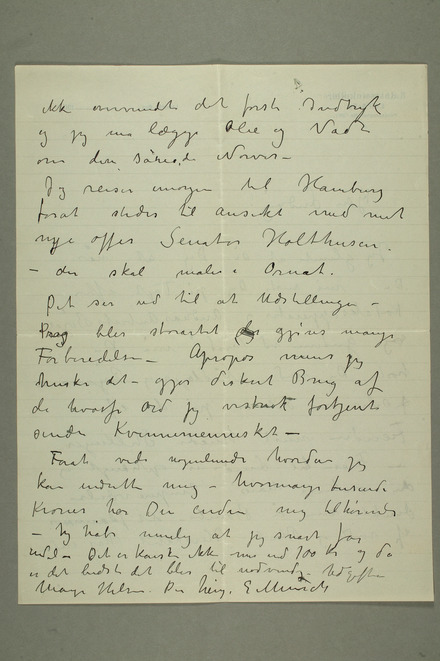 ikke omvendte det første Indtryk
og jeg må lægge Olie og Vadt
om dine sårede Nerver –
Jeg reiser imorgen til Hamburg
forat stedes til ansikt med mit
nye offer Senator Holthusen.
– der skal males i Ornat.
Det ser ud til at Udstillingen –
Prag blir storartet der gjøres mange
Forberedelser – Apropos mens jeg
husker det – gjør diskret Brug af
de hvasse Ord jeg fortjente
sendte Kvinnemennesket –
Forat vide nogenlunde hvordan jeg
kan indrette mig – hvormange tusende
Kroner har Du endnu mig tilhørende
– Jeg håber nemlig at jeg snart får
endel – Det er kanske ikke mer end 100 Kr og da
er det bedst det blir til nødvendige Udgifter
Mange Hilsen. Din heng. E Munch